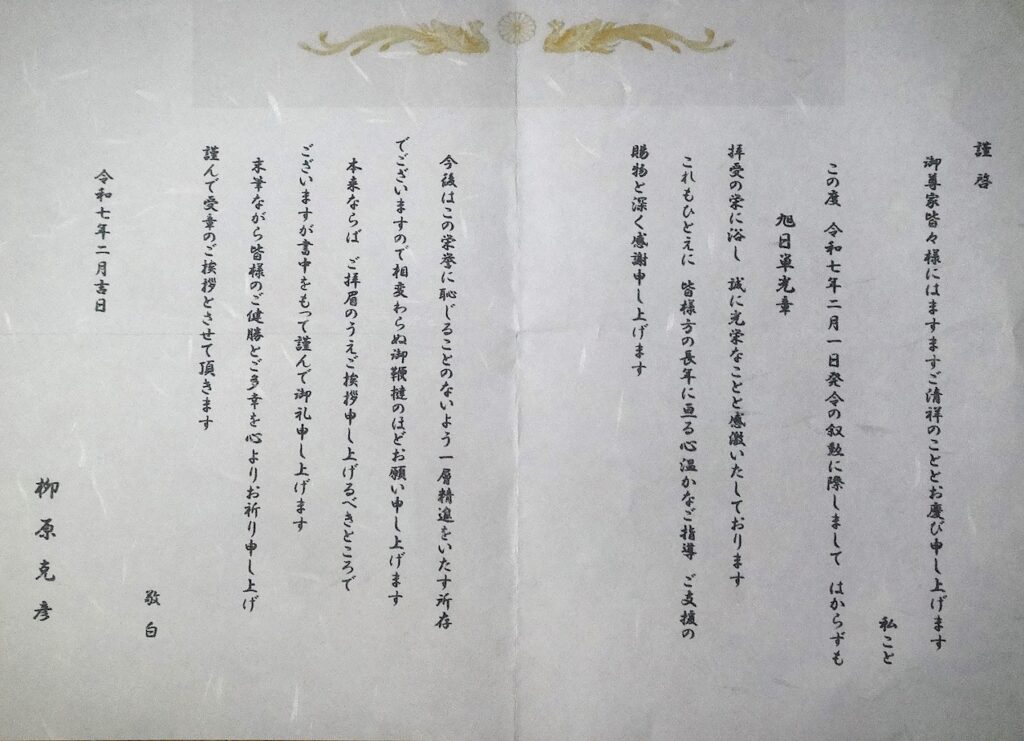 謹啓
御尊家皆々様にはますますご清祥のこととお慶び申し上げます
私こと
この度　令和七年二月一日発令の叙勲に際しまして　はからずも
旭日単光章
拝受の栄に浴し　誠に光栄なことと感激いたしております
これもひとえに　皆様方の長年に亘る心温かなご指導　ご支援の
賜物と深く感謝申し上げます
今後はこの栄誉に恥じることのないよう一層精進をいたす所存
でございますので相変わらぬ御鞭撻のほどお願い申し上げます
本来ならば　ご拝眉のうえご挨拶申し上げるべきところで
ございますが書中をもって謹んで御礼申し上げます
末筆ながら皆様のご健勝とご多幸を心よりお祈り申し上げ
謹んで受章のご挨拶とさせて頂きます
敬白
令和七年二月吉日
柳原克彦